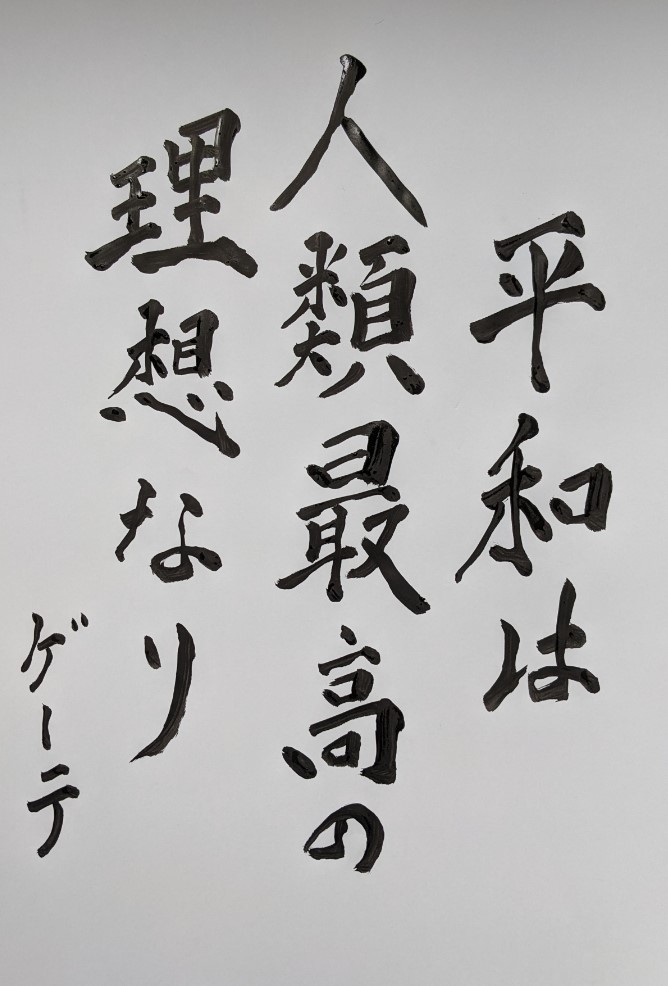 平和は
人類最高の
理想なり
ゲーテ